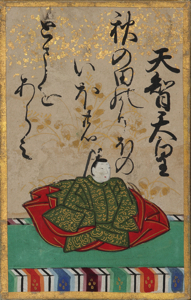 天智天皇
秋の田のかりほの
いほの
とまをあらみ